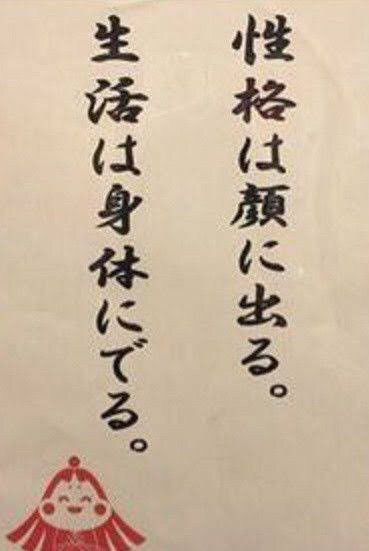 性格は顔に出る。
生活は身体にでる。